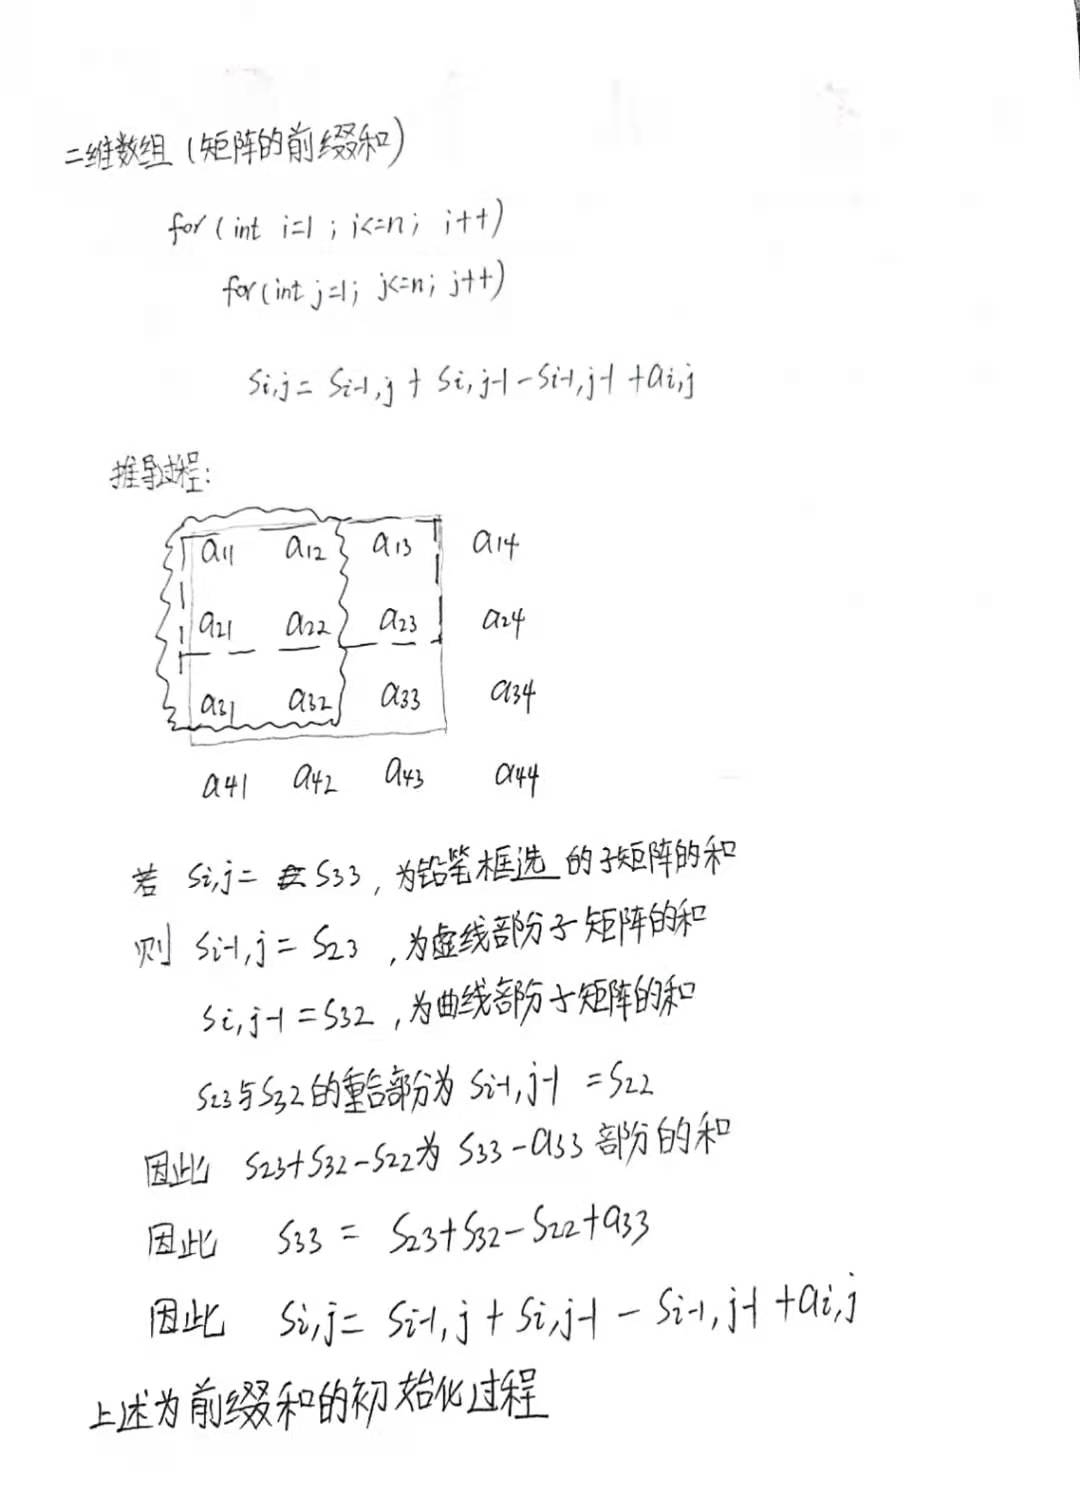 二维数组(矩阵的前缀和)
for(int i=1; i<=n; i++)
for(int j=1; j<=n; j++)
Si,j = Si-1,j + Si,j-1 - Si-1,j-1 + ai,j
推导过程:
a11 a12 a13 a14
a21 a22 a23 a24
a31 a32 a33 a34
a41 a42 a43 a44
若 Si,j = S33, 为铅笔框选的子矩阵的和
则 Si-1,j = S23, 为虚线部分子矩阵的和
Si,j-1 = S32, 为曲线部分子矩阵的和
S23与S32的重合部分为 Si-1,j-1 = S22
因此 S23+S32-S22为 S33-a33 部分的和
因此 S33 = S23+S32-S22+a33
因此 Si,j = Si-1,j + Si,j-1 - Si-1,j-1 + ai,j
上述为前缀和的初始化过程